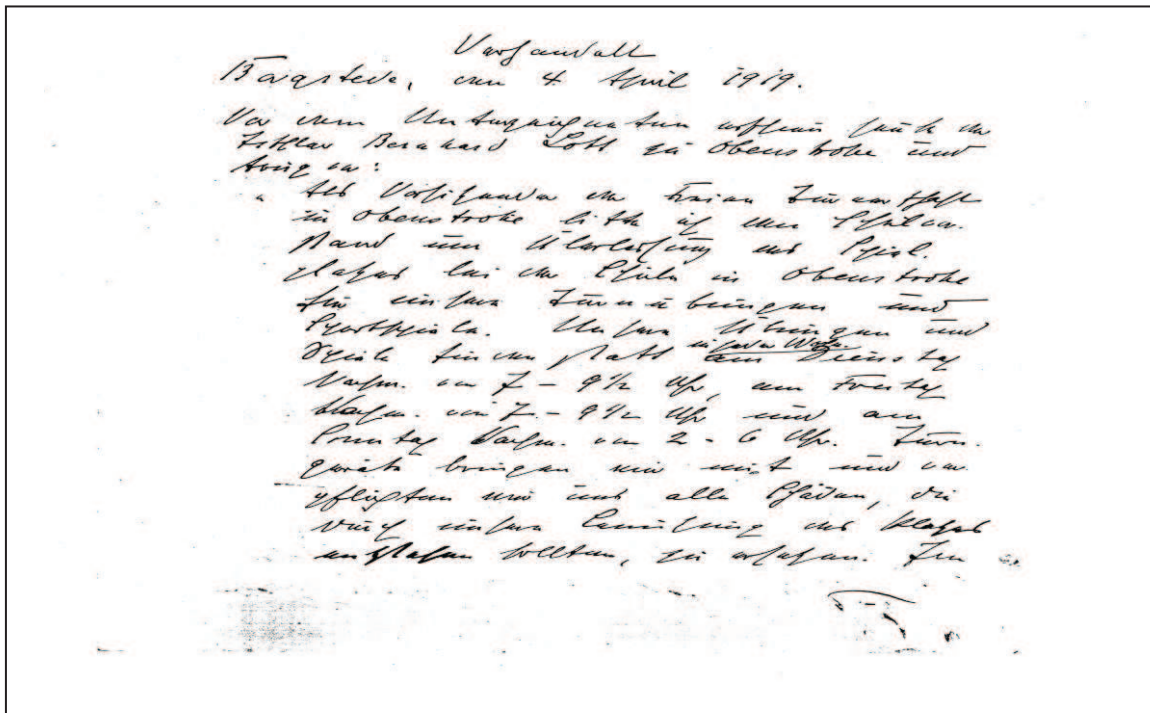 Verhandelt
Borgstede, den 4. April 1919.
Vor dem Unterzeichneten erschien heute der
Bernhard Lott zu Obenstrohe und
trug vor:
„ Als Vorsitzender der Freien Turnerschaft
in Obenstrohe bitte ich den Schulvor-
stand um Überlassung des Spiel-
platzes bei der Schule in Obenstrohe
für unsere Turnübungen und
Sportspiele. Unsere Übungen und
Spiele finden statt in jeder Woche am Dienstag
Nachm. von 7 - 9 1/2 Uhr, am Freitag
Nachm. von 7 - 9 1/2 Uhr und am
Sonntag Nachm. von 2 - 6 Uhr. Turn-
geräte bringen wir mit und ver-
pflichten wir uns alle Schäden, die
durch unsere Benutzung des Platzes
entstehen sollten, zu ersetzen. Im